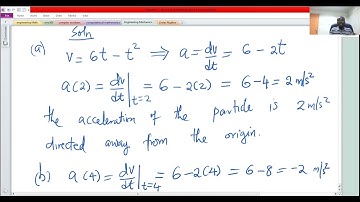 Soln
(a) v = 6t - t² ⟹ a = dv/dt = 6 - 2t
a(2) = dv/dt |t=2 = 6 - 2(2) = 6 - 4 = 2 m/s²
the acceleration of the particle is 2 m/s²
directed away from the origin.
(b) a(4) = dv/dt |t=4 = 6 - 2(4) = 6 - 8 = -2 m/s²